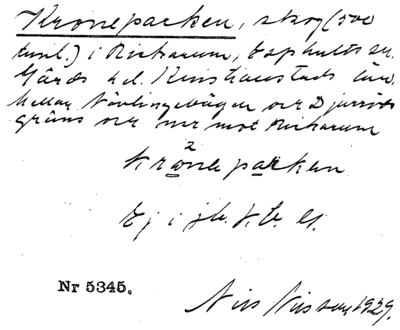 Kroneparken, skog (500
tunl.) i Rickarum, Esphults sn.
Gärds hd. Kristianstads län.
Mellan Nävlingevägen och Djurröds
gräns och ner mot Rickarum
2
Kråneparken
Ej i jb. K. B. G.
Nr 5345.
Nils Nilsson 1929.